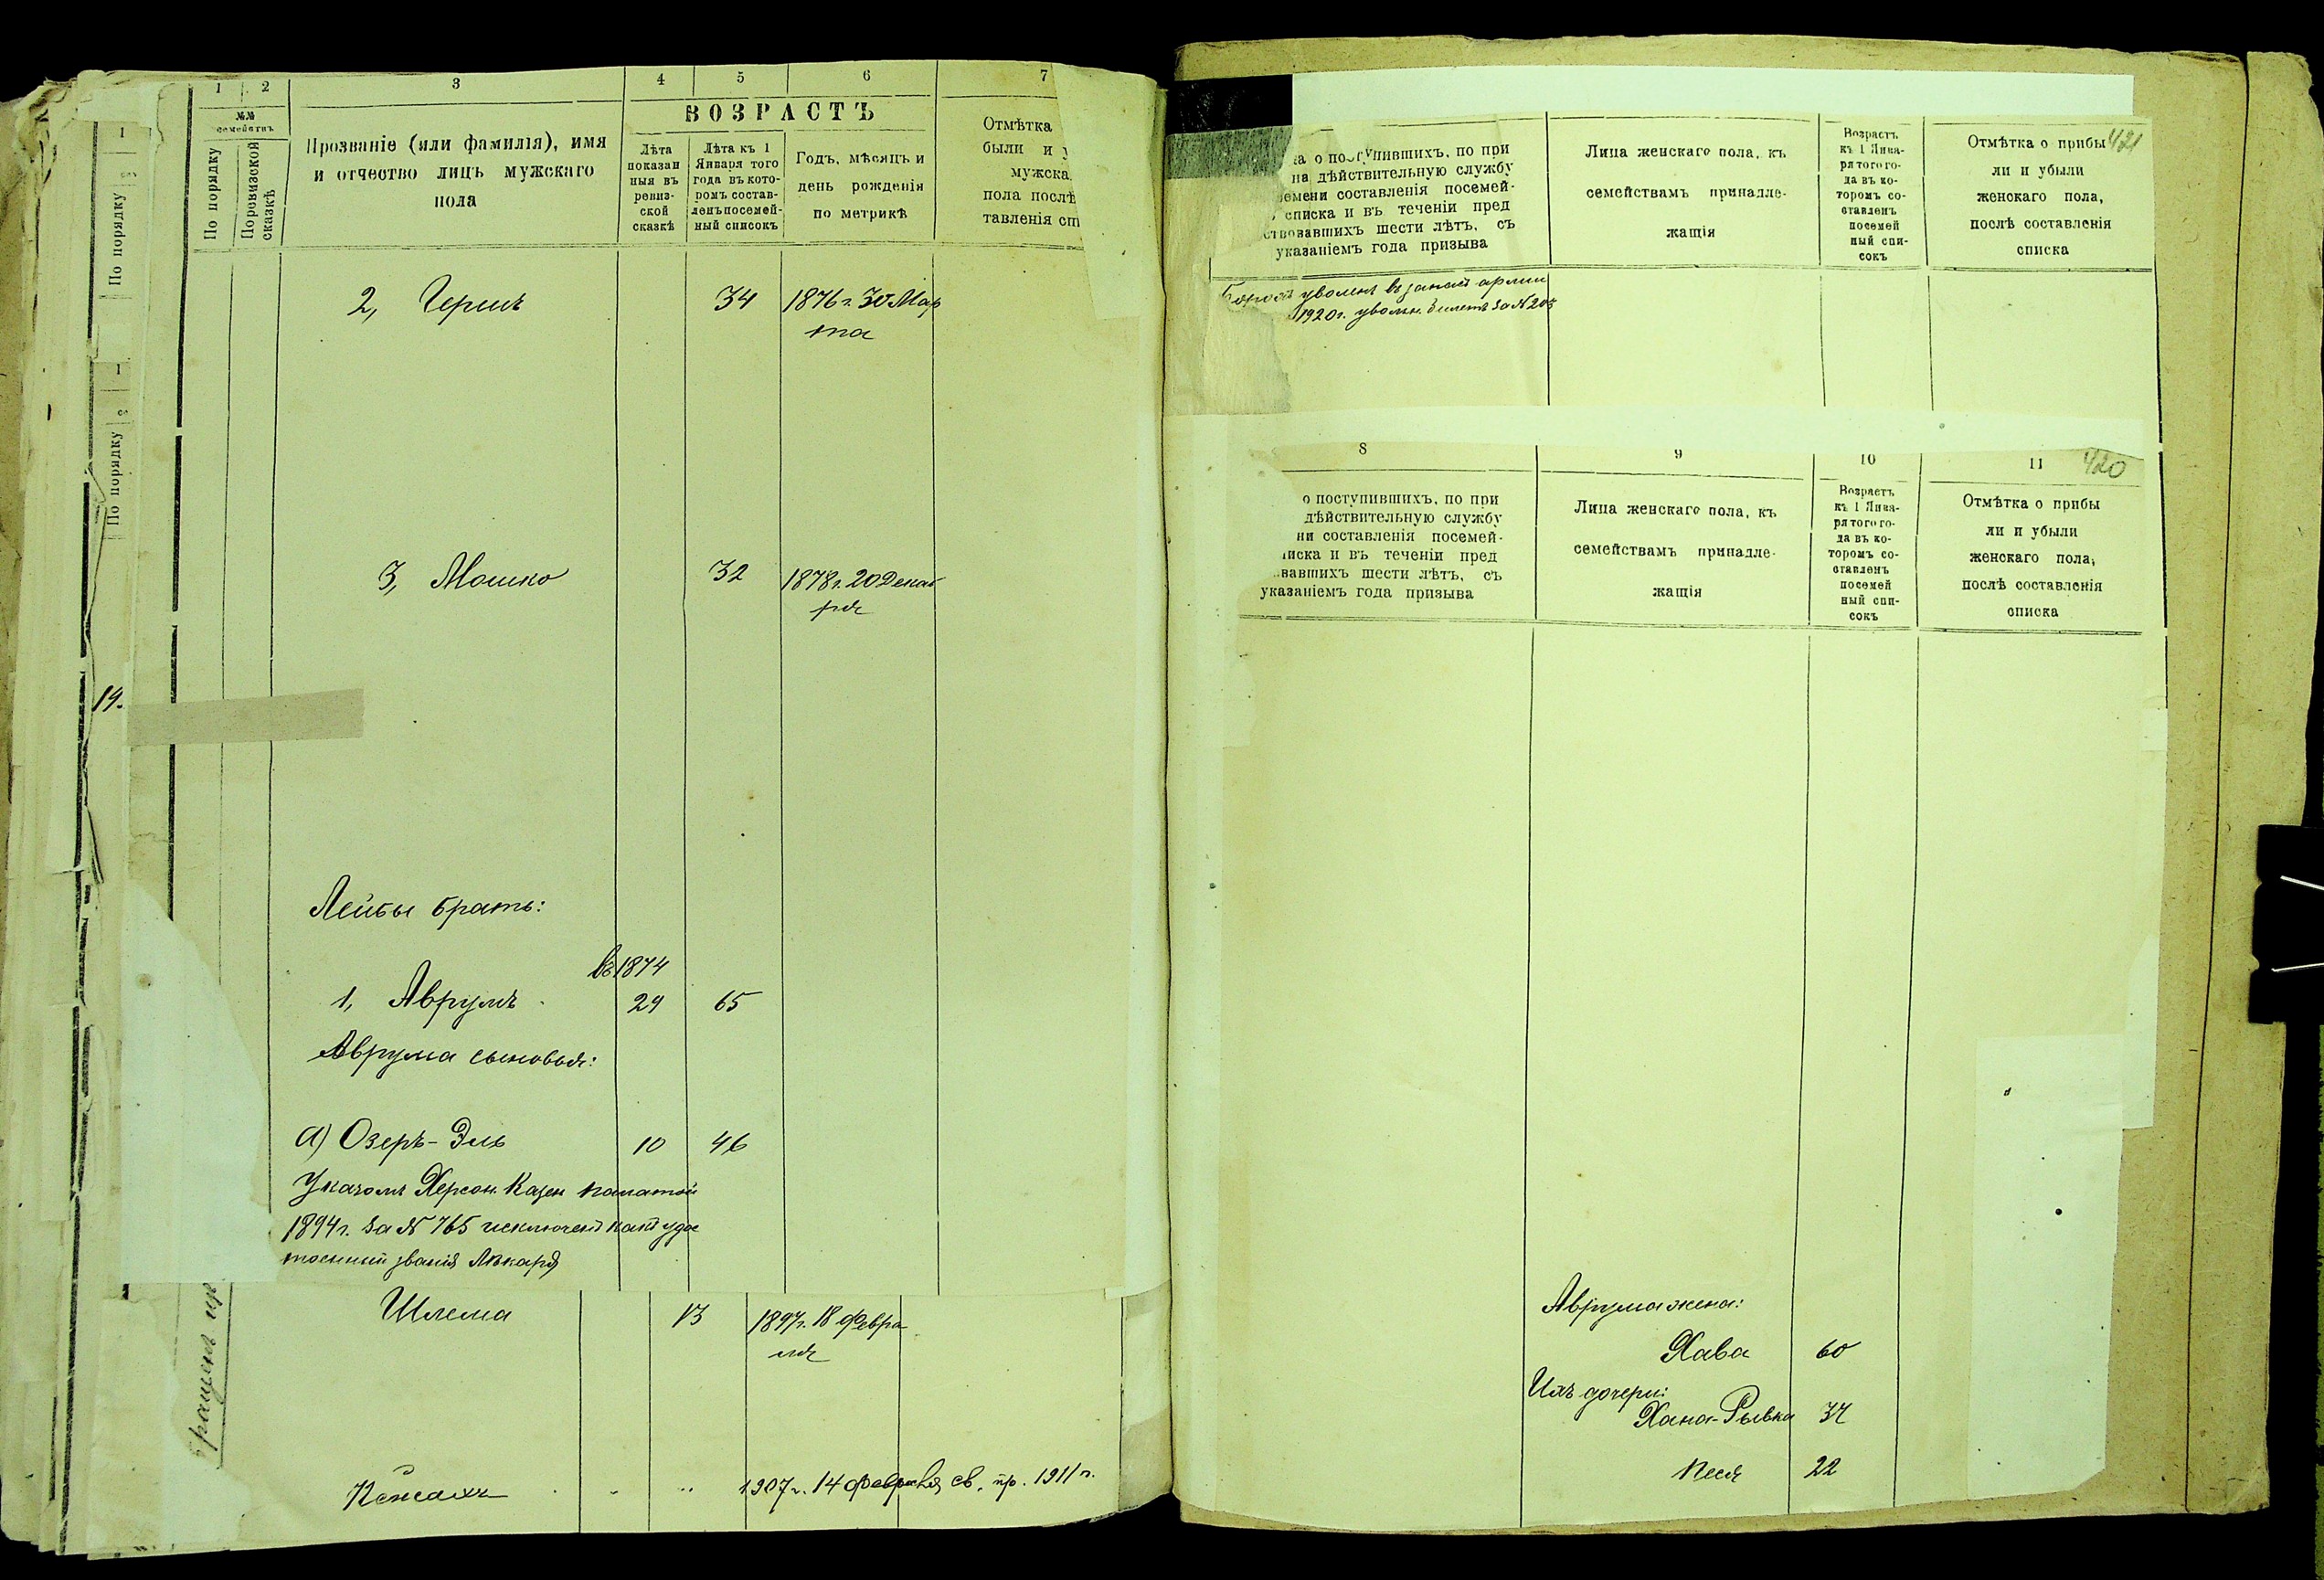 1 2 3 4 5 6 7
№№ семействъ
По порядку
По ревизской сказкѣ
Прозваніе (или фамилія), имя
и отчество лицъ мужскаго
пола
ВОЗРАСТЪ
Лѣта
показан
ныя въ
ревиз-
ской
сказкѣ
Лѣта къ 1
Января того
года въ кото-
ромъ состав-
ленъ посемей-
ный списокъ
Годъ, мѣсяцъ и
день рожденія
по метрикѣ
Отмѣтка
были и у
мужска
пола послѣ
тавленія сп
1
По порядку
1
По порядку
19.
2, Гершъ 34 1876 г. 30 Мар
та
3, Мошко 32 1878 г. 20 Декаб
ря
Лейбы братъ:
въ 1874
1, Аврумъ 29 65
Аврума сыновья:
а) Озеръ-Эль 10 46
Указомъ Херсон. Казен палатой
1894 г. за № 765 исключенъ какъ удос
тоенный званія Лѣкаря
Шлема 13 1897 г. 18 Февра
ля
1907 г. 14 Февраля св. пр. 1911 г.
421
на о поступившихъ, по при
на дѣйствительную службу
ремени составленія посемей-
списка и въ теченіи пред
ствовавшихъ шести лѣтъ, съ
указаніемъ года призыва
Лица женскаго пола, къ
семействамъ принадле-
жащія
Возрастъ
къ 1 Янва-
ря того го-
да въ ко-
торомъ со-
ставленъ
посемей
ный спи-
сокъ
Отмѣтка о прибы
ли и убыли
женскаго пола,
послѣ составленія
списка
уволенъ въ запасъ арміи
1920 г. увольн. билетъ за № 203
8 9 10 11 420
о поступившихъ, по при
дѣйствительную службу
ни составленія посемей-
писка и въ теченіи пред
вавшихъ шести лѣтъ, съ
указаніемъ года призыва
Лица женскаго пола, къ
семействамъ принадле-
жащія
Возрастъ
къ 1 Янва-
ря того го-
да въ ко-
торомъ со-
ставленъ
посемей
ный спи-
сокъ
Отмѣтка о прибы
ли и убыли
женскаго пола,
послѣ составленія
списка
Аврума жена:
Хава 60
Ихъ дочери:
Хана-Рывка 37
Песя 22